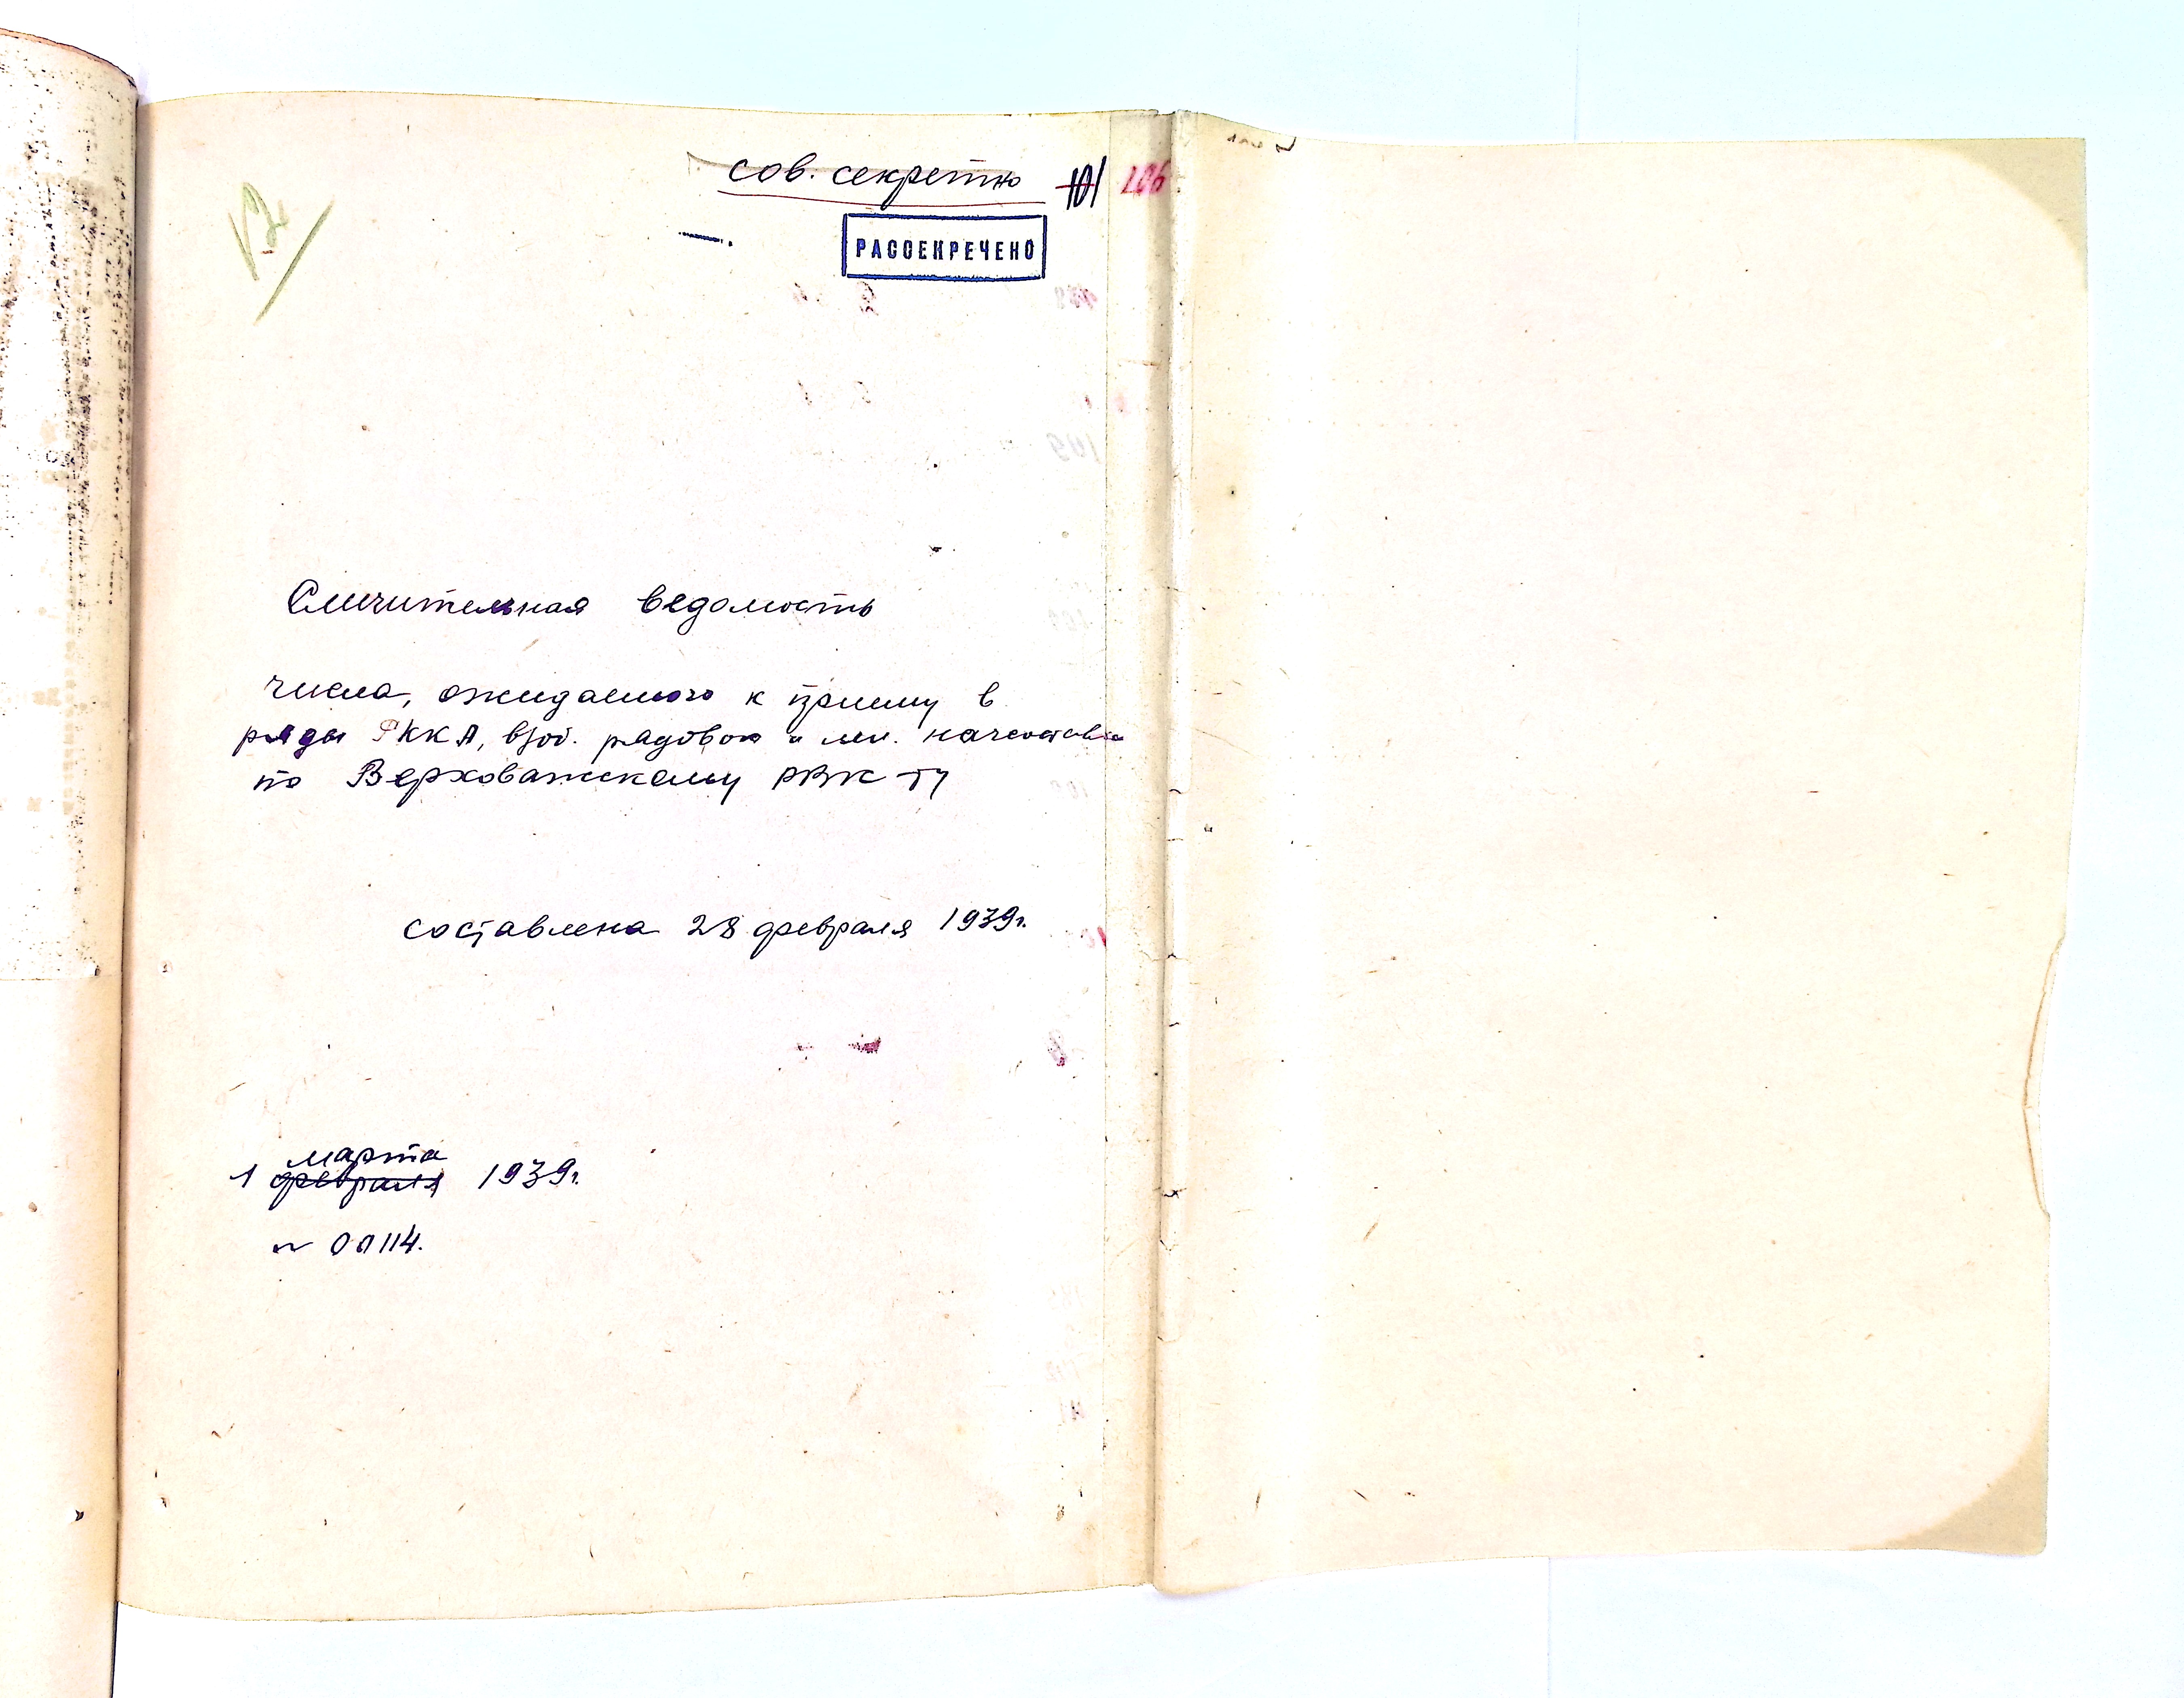 сов. секретно 101 106
РАССЕКРЕЧЕНО
Сличительная ведомость
числа, ожидаемого к приему в
ряды РККА, в/об. рядового и мл. начсостава
по Верховажскому РВК-ту
составлена 28 февраля 1939г.
марта
1 февраля 1939г.
№ 00114.